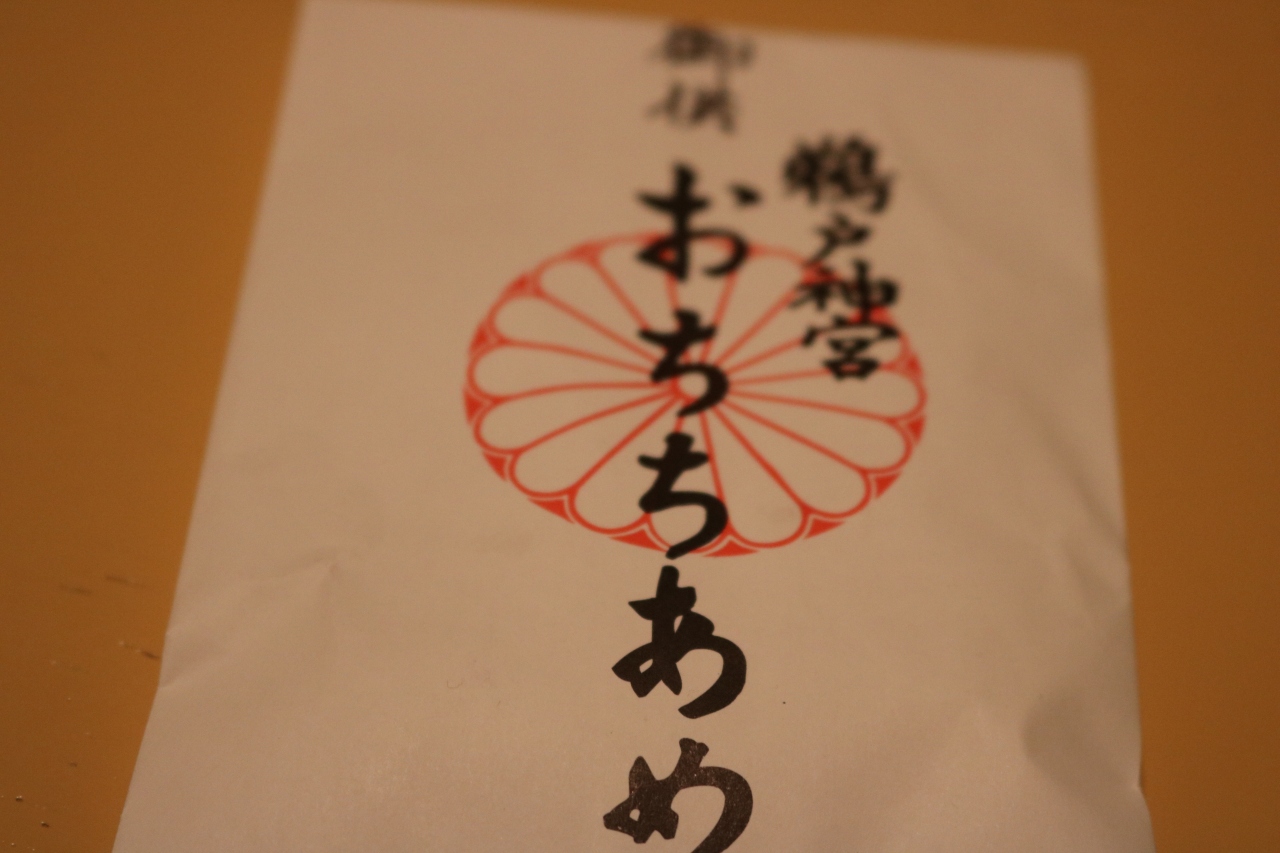 鵜戸神宮
御供
おちちあめ